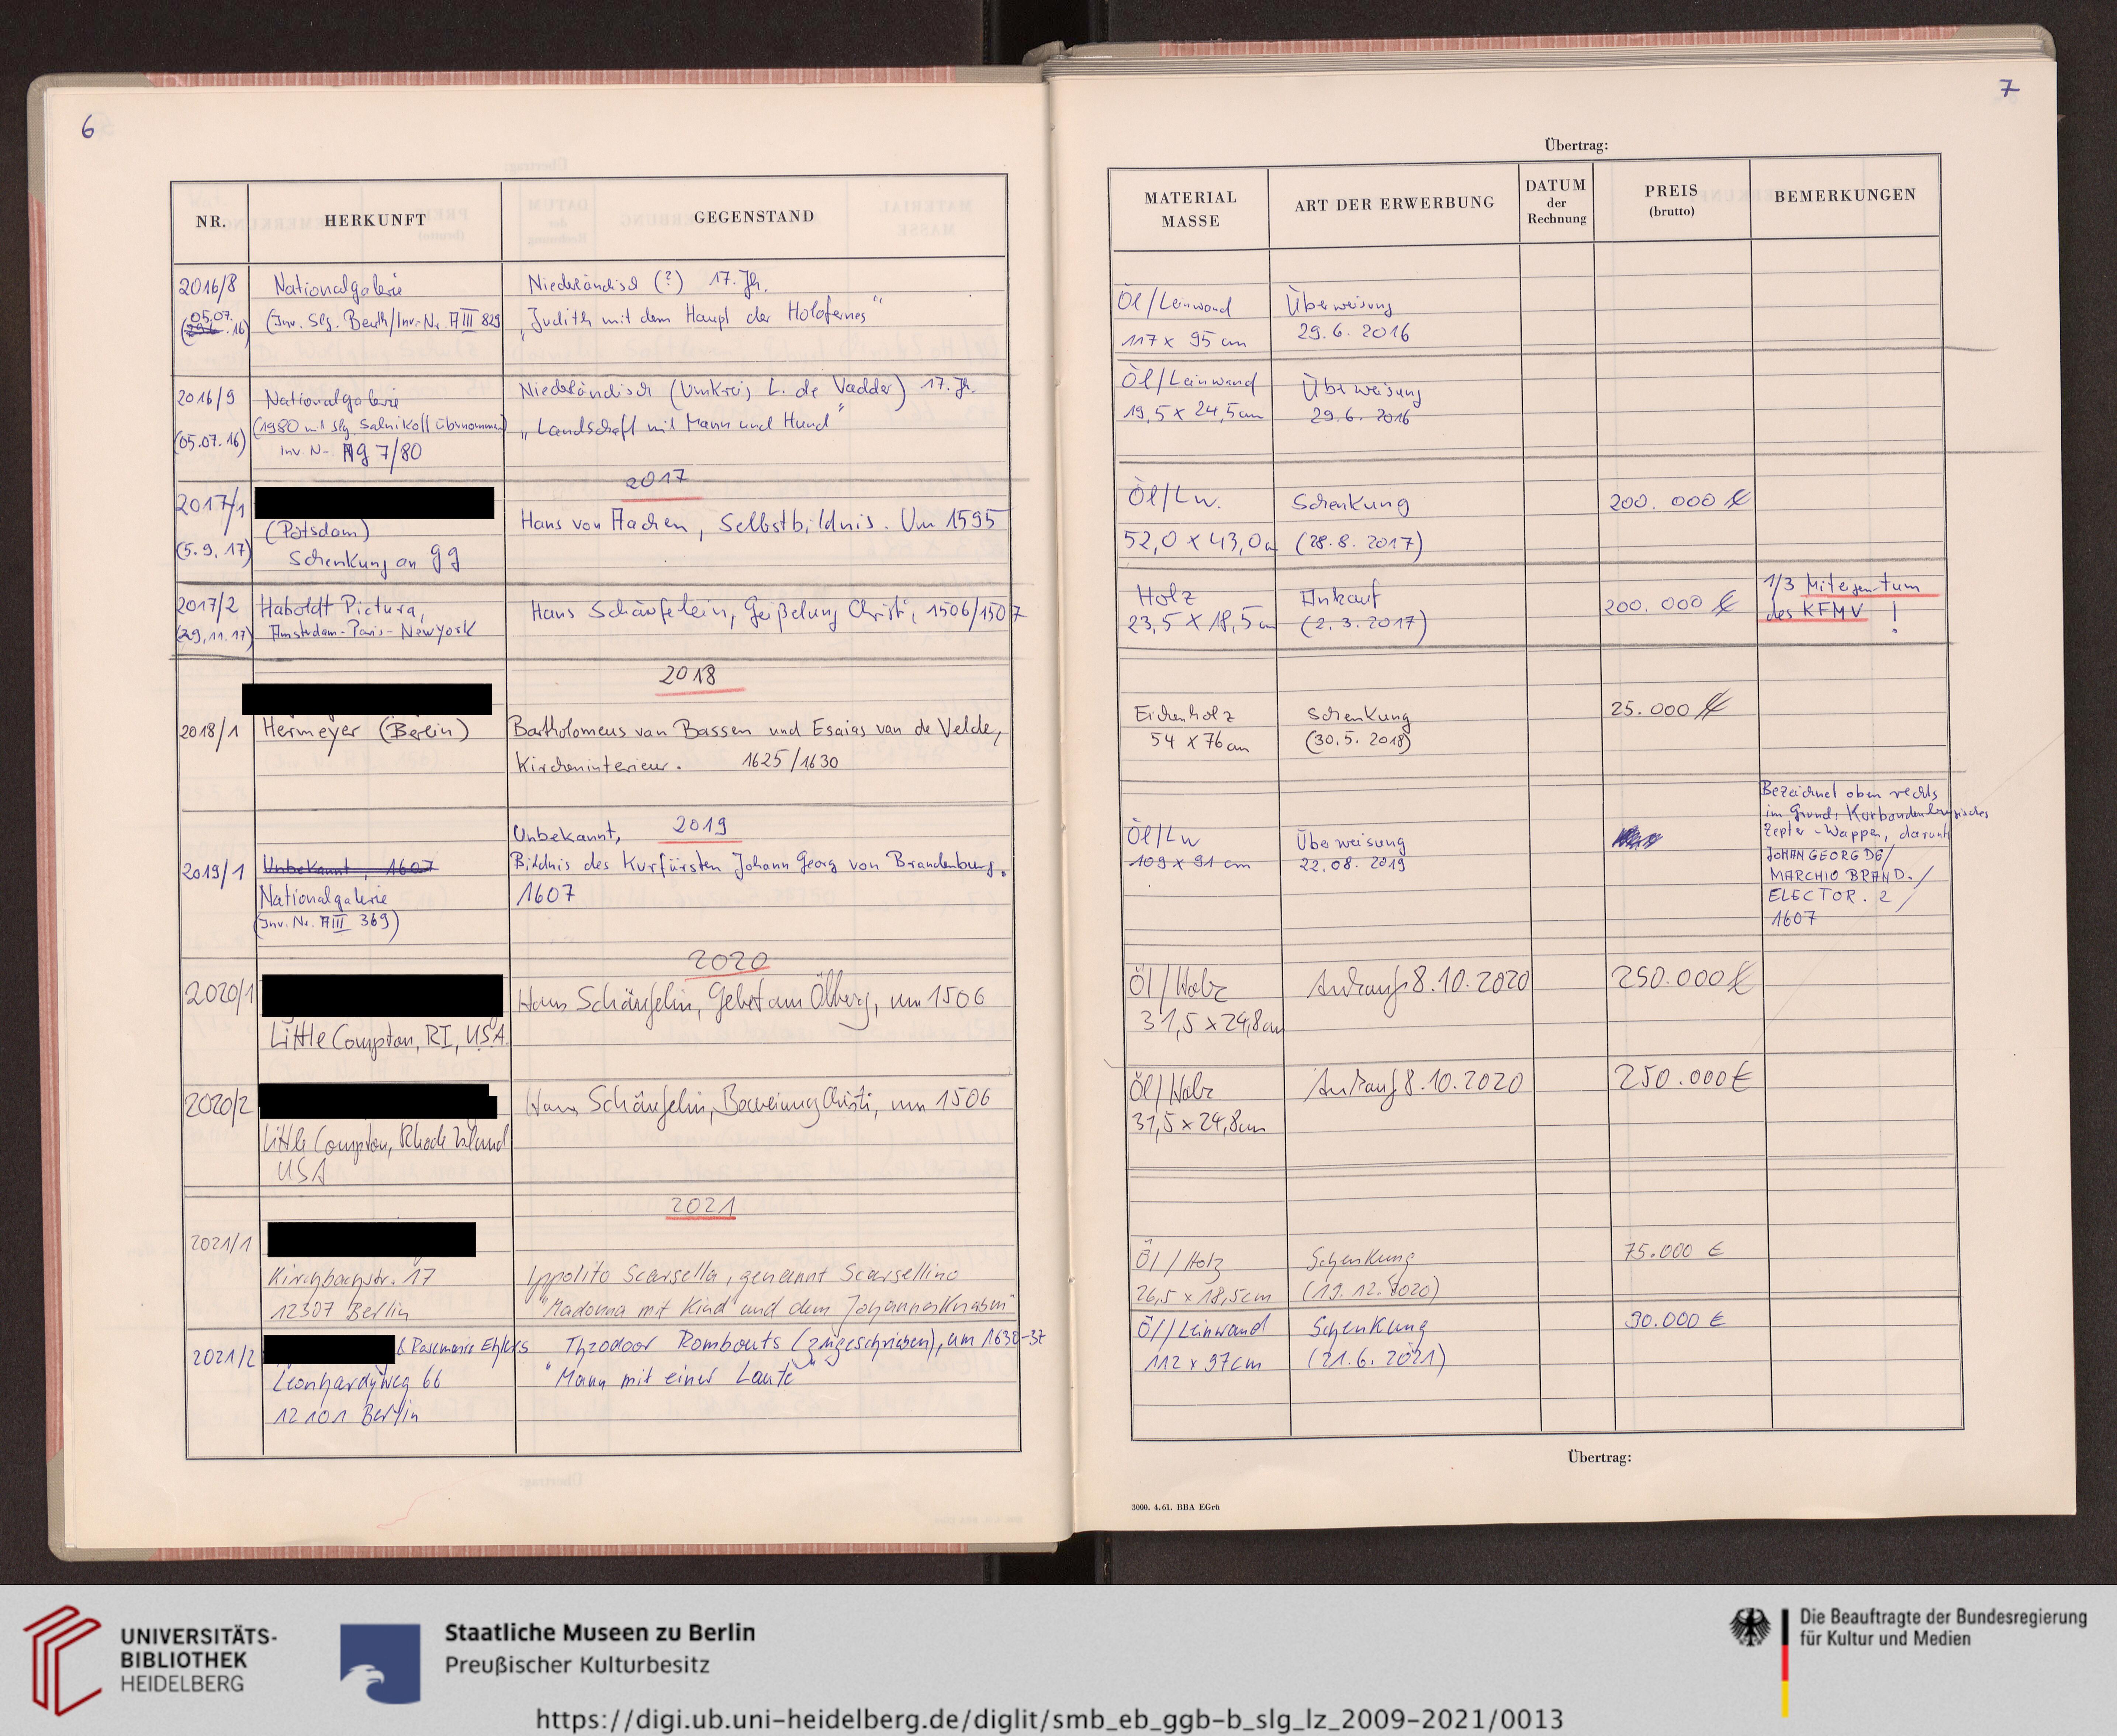 6
NR.
HERKUNFT
GEGENSTAND
2016/8
Nationalgalerie
Niederländisch (?) 17. Jh.
05.07.
(29.6. 16)
(Inv. Slg. Beuth/Inv.-Nr. A III 829
„Judith mit dem Haupt der Holofernes"
2016/9
Nationalgalerie
Niederländisch (Umkreis L. de Vadder) 17. Jh.
(05.07.16)
(1980 mit Slg. Salnikoff übernommen)
„Landschaft mit Mann und Hund"
Inv. Nr. Ng 7/80
2017
2017/1
(Potsdam)
Hans von Aachen, Selbstbildnis. Um 1595
(5.9.17)
Schenkung an GG
2017/2
Haboldt Pictura,
Hans Schäufelein, Geißelung Christi, 1506/1507
(29.11.17)
Amsterdam - Paris - New York
2018
2018/1
Hermeyer (Berlin)
Bartholomeus van Bassen und Esaias van de Velde,
Kircheninterieur. 1625/1630
2019
Unbekannt,
2019/1
Unbekannt, 1607
Bildnis des Kurfürsten Johann Georg von Brandenburg.
Nationalgalerie
1607
(Inv. Nr. A III 369)
2020
2020/1
Hans Schäufelin, Gebet am Ölberg, um 1506
Little Compton, RI, USA
2020/2
Hans Schäufelin, Beweinung Christi, um 1506
Little Compton, Rhode Island
USA
2021
2021/1
Kirchbachstr. 17
Ippolito Scarsella, genannt Scarsellino
12307 Berlin
"Madonna mit Kind und dem Johannesknaben"
2021/2
& Rosemarie Ehlers
Theodoor Rombouts (zugeschrieben), um 1630-37
Leonhardyweg 66
"Mann mit einer Laute"
12101 Berlin
7
Übertrag:
MATERIAL
MASSE
ART DER ERWERBUNG
DATUM
der
Rechnung
PREIS
(brutto)
BEMERKUNGEN
Öl/Leinwand
Überweisung
117 x 95 cm
29.6.2016
Öl/Leinwand
Überweisung
19,5 x 24,5 cm
29.6.2016
Öl/Lw.
Schenkung
200.000 €
52,0 x 43,0 cm
(28.8.2017)
Holz
Ankauf
200.000 €
1/3 Miteigentum
23,5 x 18,5 cm
(2.3.2017)
des KFMV !
Eichenholz
Schenkung
25.000 €
54 x 76 cm
(30.5.2018)
Öl/Lw
Überweisung
109 x 91 cm
22.08.2019
Bezeichnet oben rechts
im Grund, Kurbrandenburgisches
Zepter-Wappen, darunter
JOHAN GEORG DG/
MARCHIO BRAND./
ELECTOR. 2/
1607
Öl/Holz
Ankauf 8.10.2020
250.000 €
31,5 x 24,8 cm
Öl/Holz
Ankauf 8.10.2020
250.000 €
31,5 x 24,8 cm
Öl / Holz
Schenkung
75.000 €
26,5 x 18,5 cm
(19.12.2020)
Öl / Leinwand
Schenkung
30.000 €
112 x 97 cm
(21.6.2021)
Übertrag:
3000. 4.61. BBA EGrü
UNIVERSITÄTS-
BIBLIOTHEK
HEIDELBERG
Staatliche Museen zu Berlin
Preußischer Kulturbesitz
Die Beauftragte der Bundesregierung
für Kultur und Medien
https://digi.ub.uni-heidelberg.de/diglit/smb_eb_ggb-b_slg_lz_2009-2021/0013